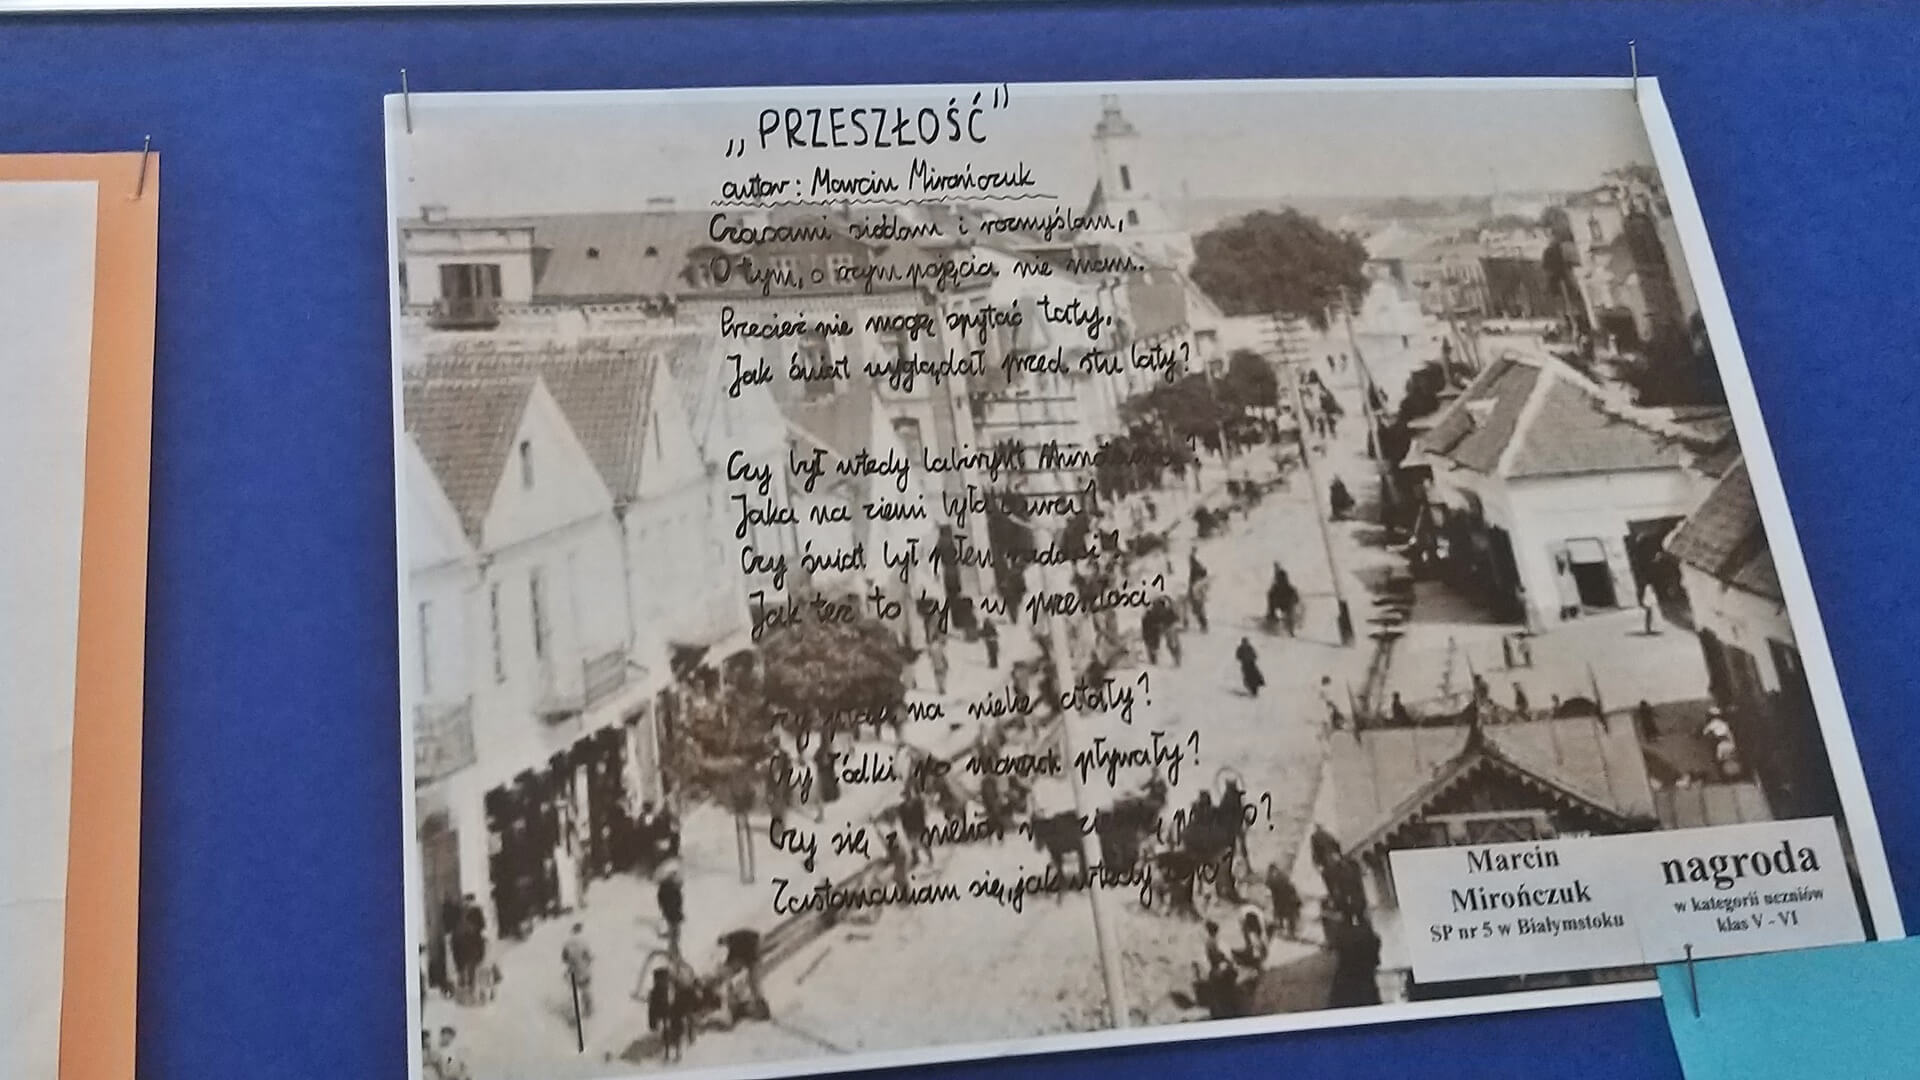 „PRZESZŁOŚĆ”
autor: Marcin Mirończuk
Czasami siadam i rozmyślam,
O tym, o czym pojęcia nie mam.
Przecież nie mogę spytać taty,
Jak świat wyglądał przed stu laty?
Czy był wtedy labirynt
Jaka na ziemi była
Czy świat był pełen
Jak też to było w przeszłości?
na niebie latały?
Czy łódki po morzach pływały?
Czy się z nieba
Zastanawiam się, jak wtedy było?
Marcin
Mirończuk
SP nr 5 w Białymstoku
nagroda
w kategorii uczniów
klas V - VI